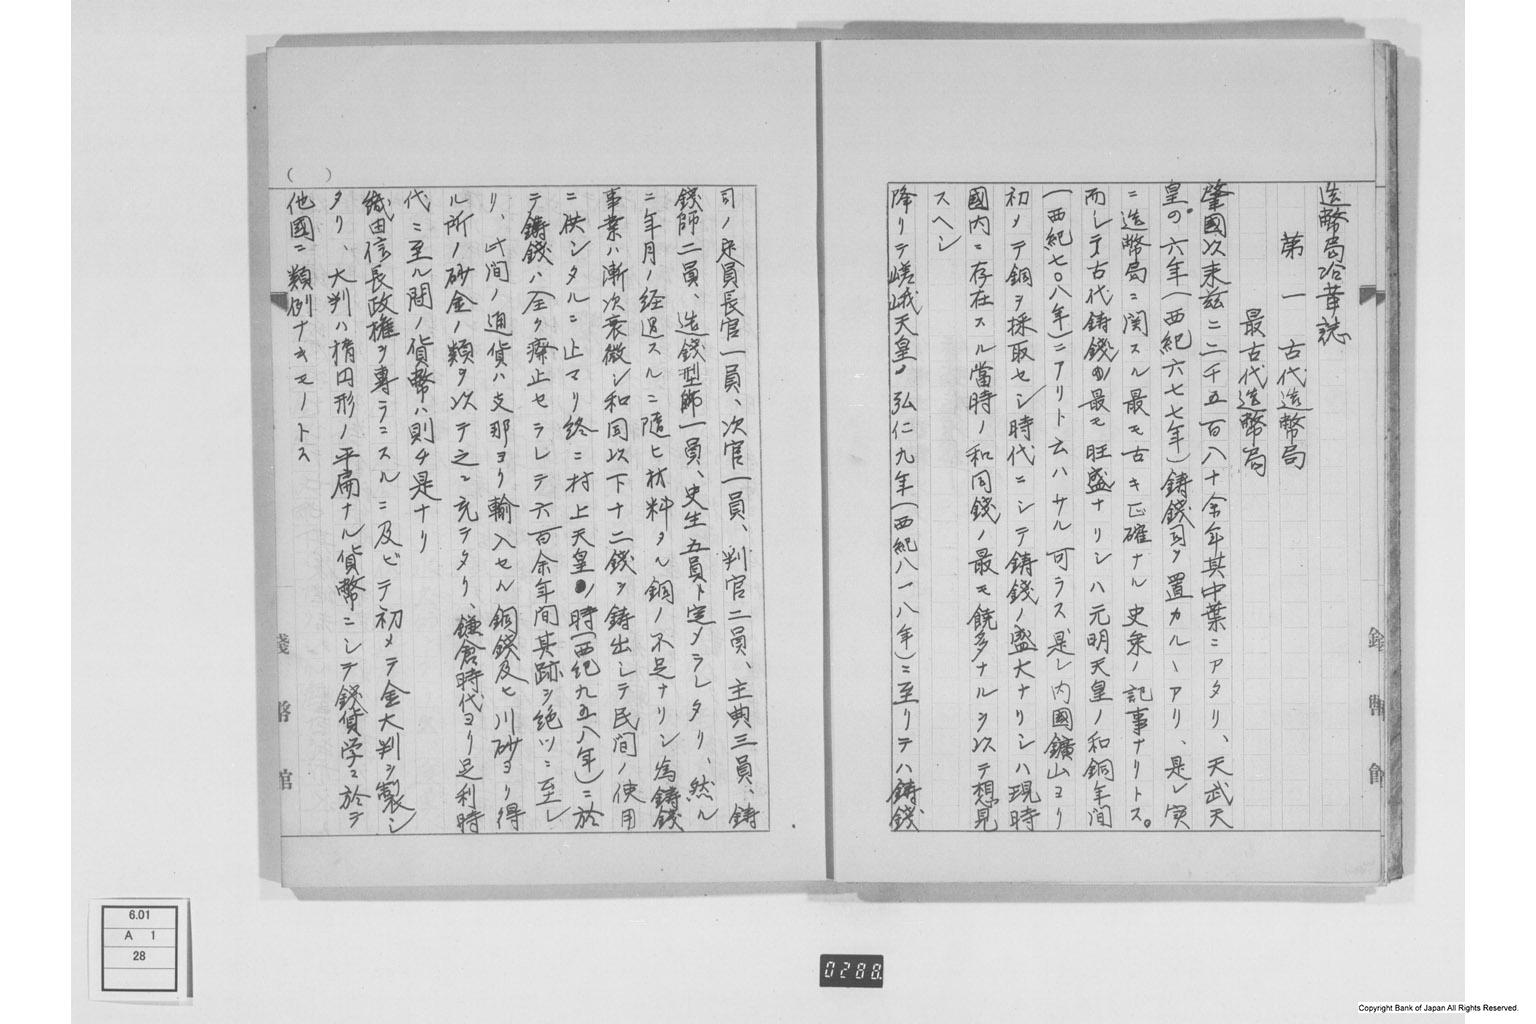 造幣局沿革誌
第一 古代造幣局
最古代造幣局
肇國以来茲ニ二千五百八十余年其中葉ニアタリ、天武天
皇の六年(西紀六七七年)鋳錢司ヲ置カルヽアリ、是レ実
ニ造幣局ニ関スル最モ古キ正確ナル史乗ノ記事ナリトス。
而シテ古代鋳錢の最モ旺盛ナリシハ元明天皇ノ和銅年間
(西紀七〇八年)ニアリト云ハサル可ラス是レ内國鑛山ヨリ
初メテ銅ヲ採取セシ時代ニシテ鋳錢ノ盛大ナリシハ現時
國内ニ存在スル當時ノ和同錢ノ最モ饒多ナルヲ以テ想見
スヘシ
降リテ嵯峨天皇ノ弘仁九年(西紀八一八年)ニ至リテハ鋳錢
司ノ定員長官一員、次官一員、判官二員、主典三員、鋳
錢師二員、造錢型師一員、史生五員ト定メラレタリ、然ル
ニ年月ノ経過スルニ隨ヒ材料タル銅ノ不足ナリシ為鋳錢
事業ハ漸次衰微シ和同以下十二錢ヲ鋳出シテ民間ノ使用
ニ供シタルニ止マリ終ニ村上天皇ノ時(西紀九五八年)ニ於
テ鋳錢ハ全ク癈止セラレテ六百余年間其跡ヲ絶ツニ至レ
リ、此間ノ通貨ハ支那ヨリ輸入セル銅錢及ヒ川砂ヨリ得
ル所ノ砂金ノ類ヲ以テ之ニ充テタリ、鎌倉時代ヨリ足利時
代ニ至ル間ノ貨幣ハ則チ是ナリ
織田信長政権ヲ専ラニスルニ及ビテ初メテ金大判ヲ製シ
タリ、大判ハ楕円形ノ平扁ナル貨幣ニシテ錢貨学ニ於テ
他國ニ類例ナキモノトス
( )
錢幣館
6.01
A 1
28
0288
Copyright Bank of Japan All Rights Reserved.